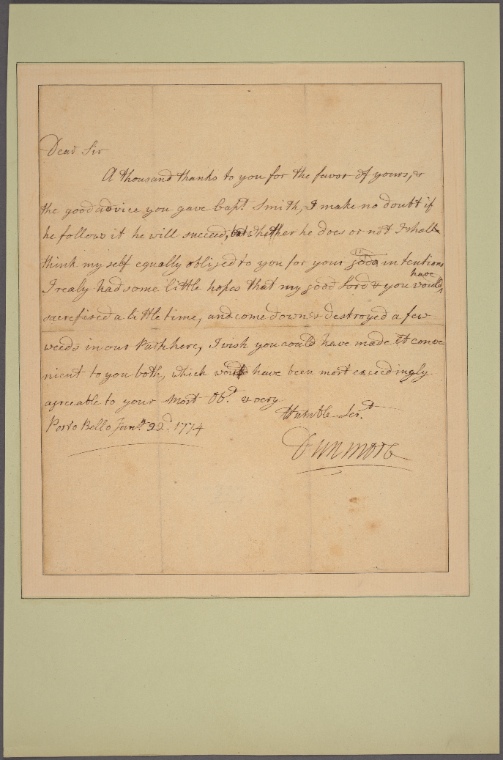 Dear Sir
A thousand thanks to you for the favor of yours, &
the good advice you gave Capt. Smith, I make no doubt if
he follow it he will succeed, whether he does or not I shall
think my self equally oblijed to you for your good intentions
I realy had some little hopes that my good Lord & you would have
sacrefised a little time, and come down & destroyed a few
weeds in our Path here, I wish you could have made it conve
nient to you both, which would have been most exceedingly
agreeable to your Most Obt. & very
Humble Sert.
Porto Bello 22d. 1774
Dunmore